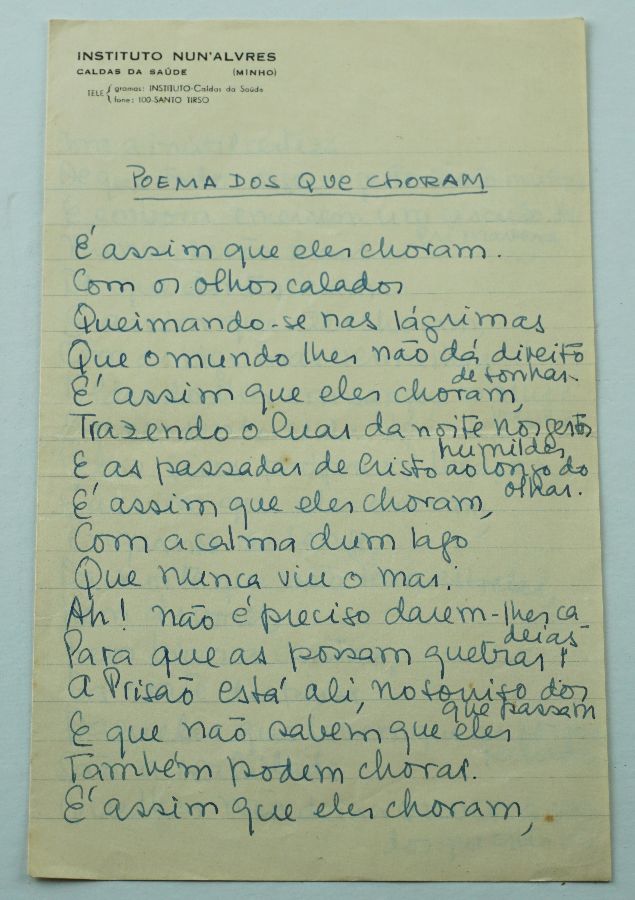 INSTITUTO NUN'ALVRES
CALDAS DA SAÚDE (MINHO)
TELE { gramas: INSTITUTO-Caldas da Saúde
fone: 100-SANTO TIRSO
POEMA DOS QUE CHORAM
É assim que eles choram.
Com os olhos calados
Queimando-se nas lágrimas
Que o mundo lhes não dá direito
de sonhar.
É assim que eles choram,
Trazendo o luar da noite nos gestos
humildes
E as passadas de Cristo ao longo do
olhar.
É assim que eles choram,
Com a calma dum lago
Que nunca viu o mar.
Ah! não é preciso darem-lhes ca
deias
Para que as possam quebrar!
A Prisão está ali, no sorriso dos
que passam
E que não sabem que eles
Também podem chorar.
É assim que eles choram,